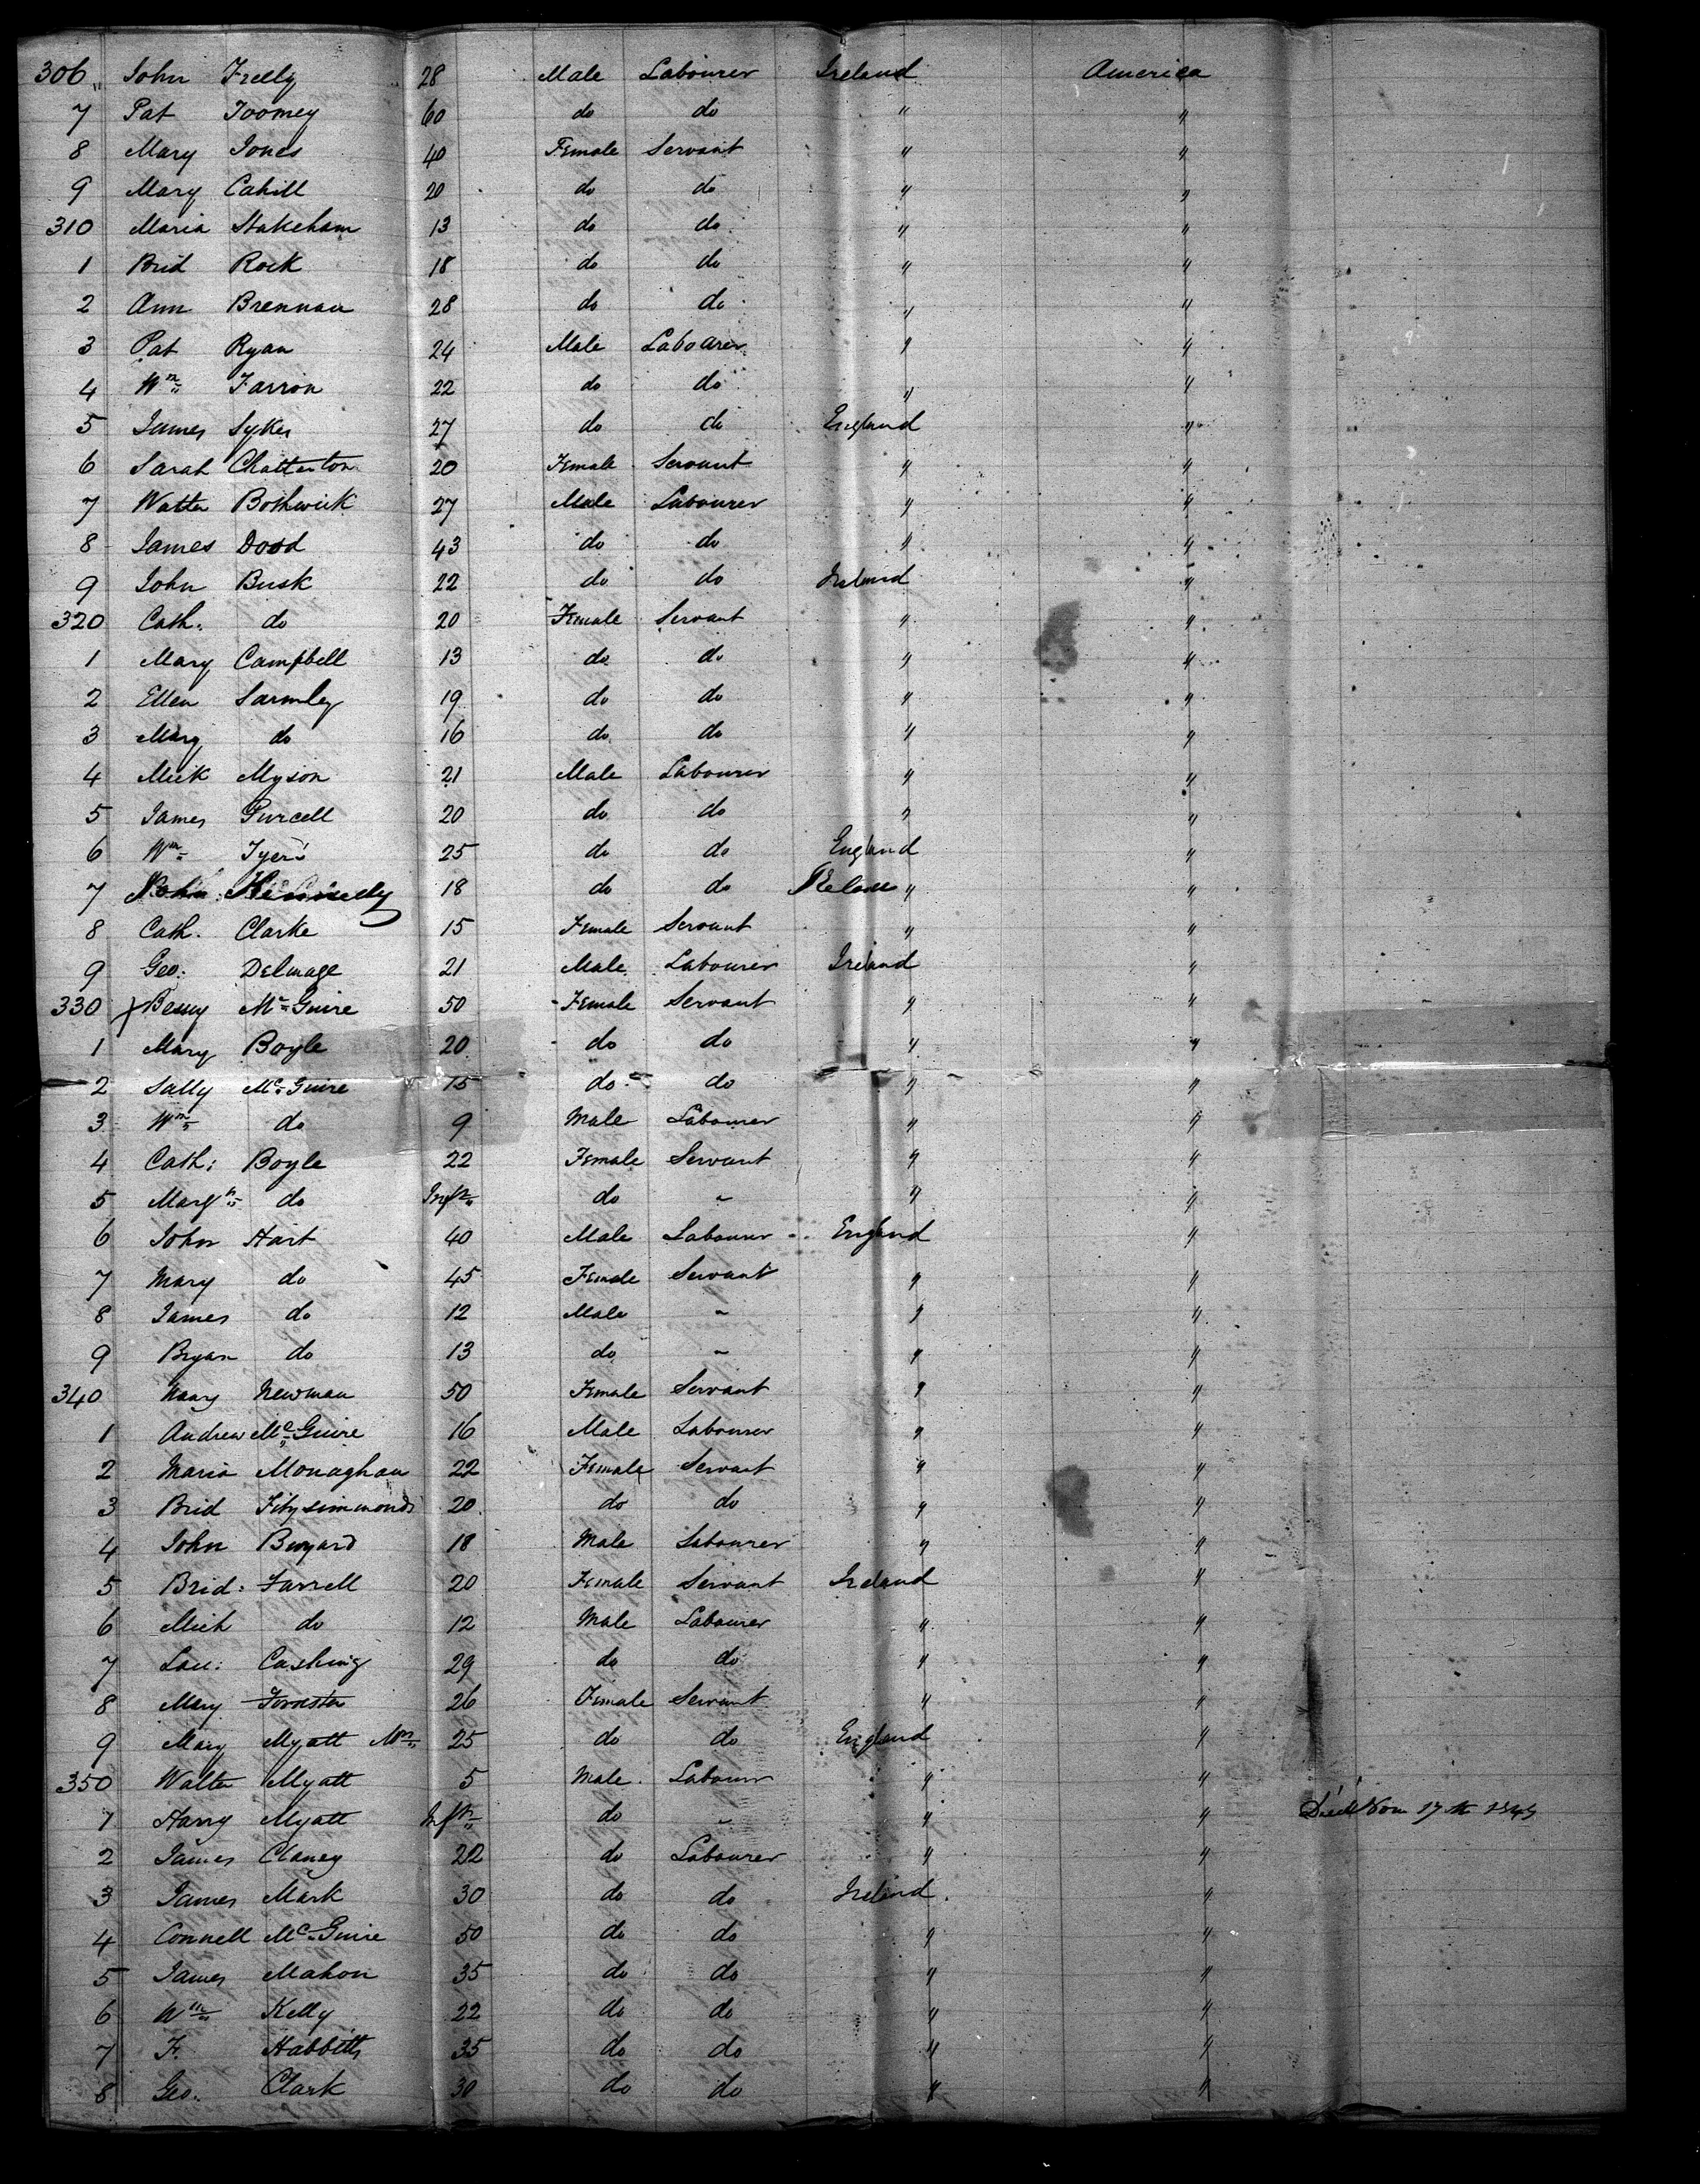 306 John Freely 28 Male Labourer Ireland America
7 Pat Toomey 60 do do " "
8 Mary Jones 40 Female Servant " "
9 Mary Cahill 20 do do " "
310 Maria Stakeham 13 do do " "
1 Brid Rock 18 do do " "
2 Ann Brennan 28 do do " "
3 Pat Ryan 24 Male Labourer " "
4 Wm Farron 22 do do " "
5 James Sykes 27 do do England "
6 Sarah Chatterton 20 Female Servant " "
7 Walter Bothwick 27 Male Labourer " "
8 James Dodd 43 do do " "
9 John Busk 22 do do Ireland "
320 Cath: do 20 Female Servant " "
1 Mary Campbell 13 do do " "
2 Ellen Sarmley 19 do do " "
3 Mary do 16 do do " "
4 Mick Myson 21 Male Labourer " "
5 James Purcell 20 do do " "
6 Wm Tyers 25 do do England "
7 John 18 do do "
8 Cath. Clarke 15 Female Servant " "
9 Geo: Delmage 21 Male Labourer Ireland "
330 Bessy McGuire 50 Female Servant " "
1 Mary Boyle 20 do do " "
2 Sally McGuire 15 do do " "
3 Wm do 9 Male Labourer " "
4 Cath: Boyle 22 Female Servant " "
5 Margt do Inft do " " "
6 John Hart 40 Male Labourer England "
7 Mary do 45 Female Servant " "
8 James do 12 Male " " "
9 Bryan do 13 do " " "
340 Mary Newman 50 Female Servant " "
1 Andrew McGuire 16 Male Labourer " "
2 Maria Monaghan 22 Female Servant " "
3 Brid Fitzsimmonds 20 do do " "
4 John Bunyard 18 Male Labourer " "
5 Brid: Farrell 20 Female Servant Ireland "
6 Mick do 12 Male Labourer " "
7 Lau: Cashing 29 do do " "
8 Mary Forrester 26 Female Servant " "
9 Mary Myatt 25 do do England "
350 Walter Myatt 5 Male Labourer " "
1 Harry Myatt Inft do " " " Died Nov 17th
2 James Clancy 22 do Labourer " "
3 James Mark 30 do do Ireland "
4 Connell McGuire 50 do do " "
5 James Mahon 35 do do " "
6 Wm Kelly 22 do do " "
7 F. Habbitts 35 do do " "
8 Geo. Clark 30 do do " "